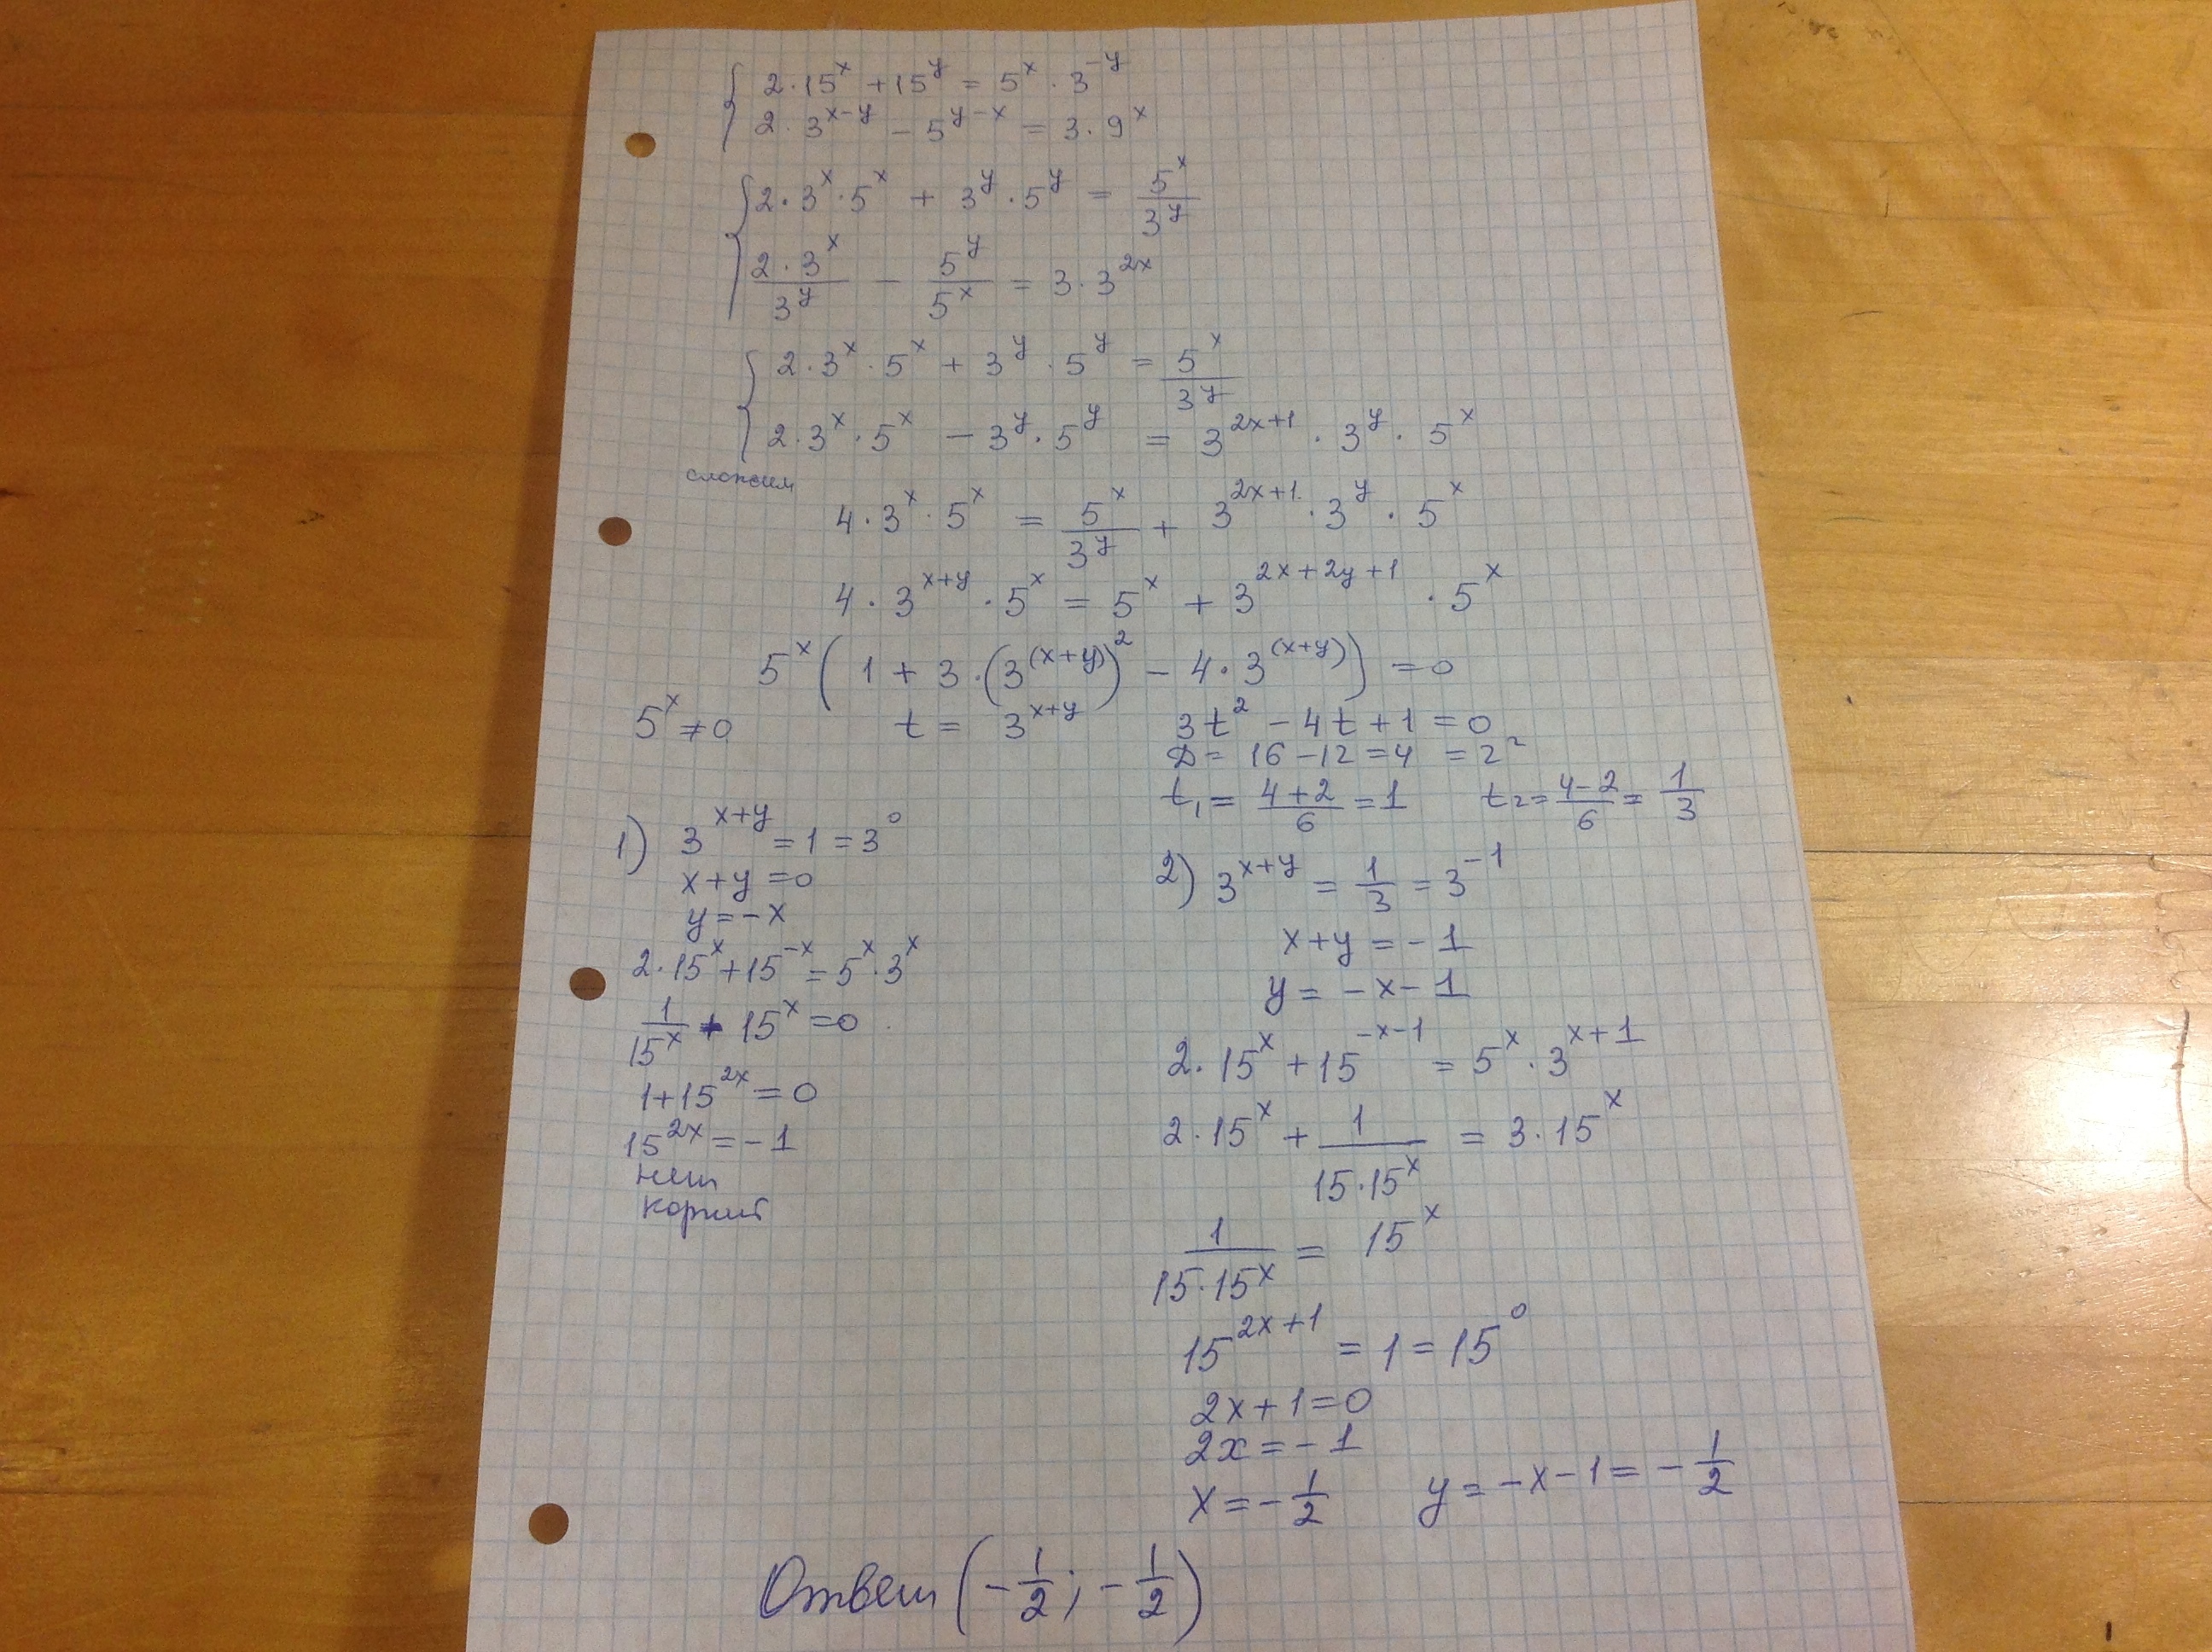 2·15^x + 15^y = 5^x · 3^-y
2·3^x-y - 5^y-x = 3·9^x
2·3^x·5^x + 3^y·5^y = 5^x/3^y
2·3^x/3^y - 5^y/5^x = 3·3^2x
2·3^x·5^x + 3^y·5^y = 5^x/3^y
2·3^x·5^x - 3^y·5^y = 3^2x+1·3^y·5^x
сложим
4·3^x·5^x = 5^x/3^y + 3^2x+1·3^y·5^x
4·3^x+y·5^x = 5^x + 3^2x+2y+1·5^x
5^x(1 + 3·(3^(x+y))^2 - 4·3^(x+y)) = 0
5^x ≠ 0 t = 3^x+y 3t^2 - 4t + 1 = 0
D = 16 - 12 = 4 = 2^2
t₁ = 4+2/6 = 1 t₂ = 4-2/6 = 1/3
1) 3^x+y = 1 = 3^0
x+y = 0
y = -x
2·15^x + 15^-x = 5^x·3^x
1/15^x + 15^x = 0
1 + 15^2x = 0
15^2x = -1
нет
корней
2) 3^x+y = 1/3 = 3^-1
x+y = -1
y = -x-1
2·15^x + 15^-x-1 = 5^x·3^x+1
2·15^x + 1/15·15^x = 3·15^x
1/15·15^x = 15^x
15^2x+1 = 1 = 15^0
2x+1 = 0
2x = -1
x = -1/2 y = -x-1 = -1/2
Ответ (-1/2; -1/2)